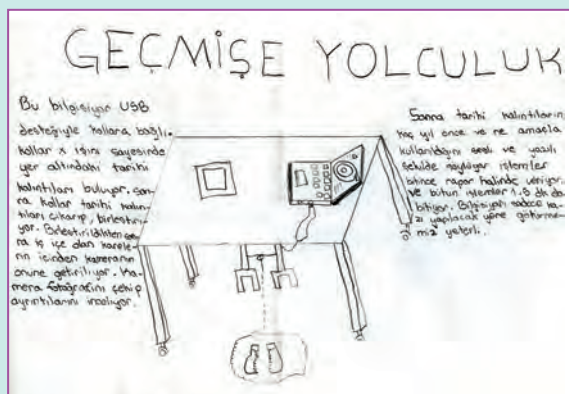 GEÇMİŞE YOLCULUK
Bu bilgisiyar USB
desteğiyle kollara bağlı.
kollar x ışını sayesinde
yer altındaki tarihi
kalıntıları buluyor. son-
ra kollar tarihi kalın-
tıları çıkarıp, birleştiri-
yor. Birleştirildikten so-
ra iç içe olan karele-
rin içinden kameranın
önüne getiriliyor. Ka-
mera fotoğrafını çekip
ayrıntılarını inceliyor.
Sonra tarihi kalıntıların
kaç yıl önce ve ne amaçla
kullanıldığını sesli ve yazılı
şekilde söylüyor işlemler
bitince rapor halinde veriyor.
ve bütün işlemler 1.5 dk da
bitiyor. Bilgisiyarı sadece ka-
zı yapılacak yere götürme-
miz yeterli.